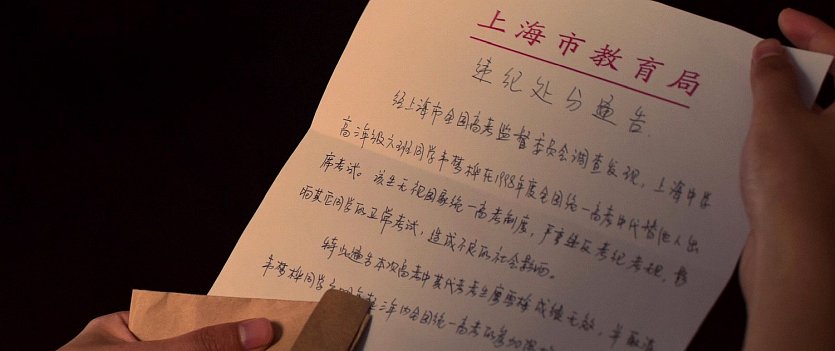 上海市教育局
违纪处分通告.
经上海市全国高考监督委员会调查发现,上海中学
高三年级六班同学韦梦桦在1998年度全国统一高考中代替他人出
席考试。该生无视国家统一高考制度,严重违反考纪考规,影
响其它同学的正常考试,造成不良的社会影响。
特此通告本次高考中其代考考生廖雨桦成绩无效,并取消
韦梦桦同学 三年内全国统一高考的参加